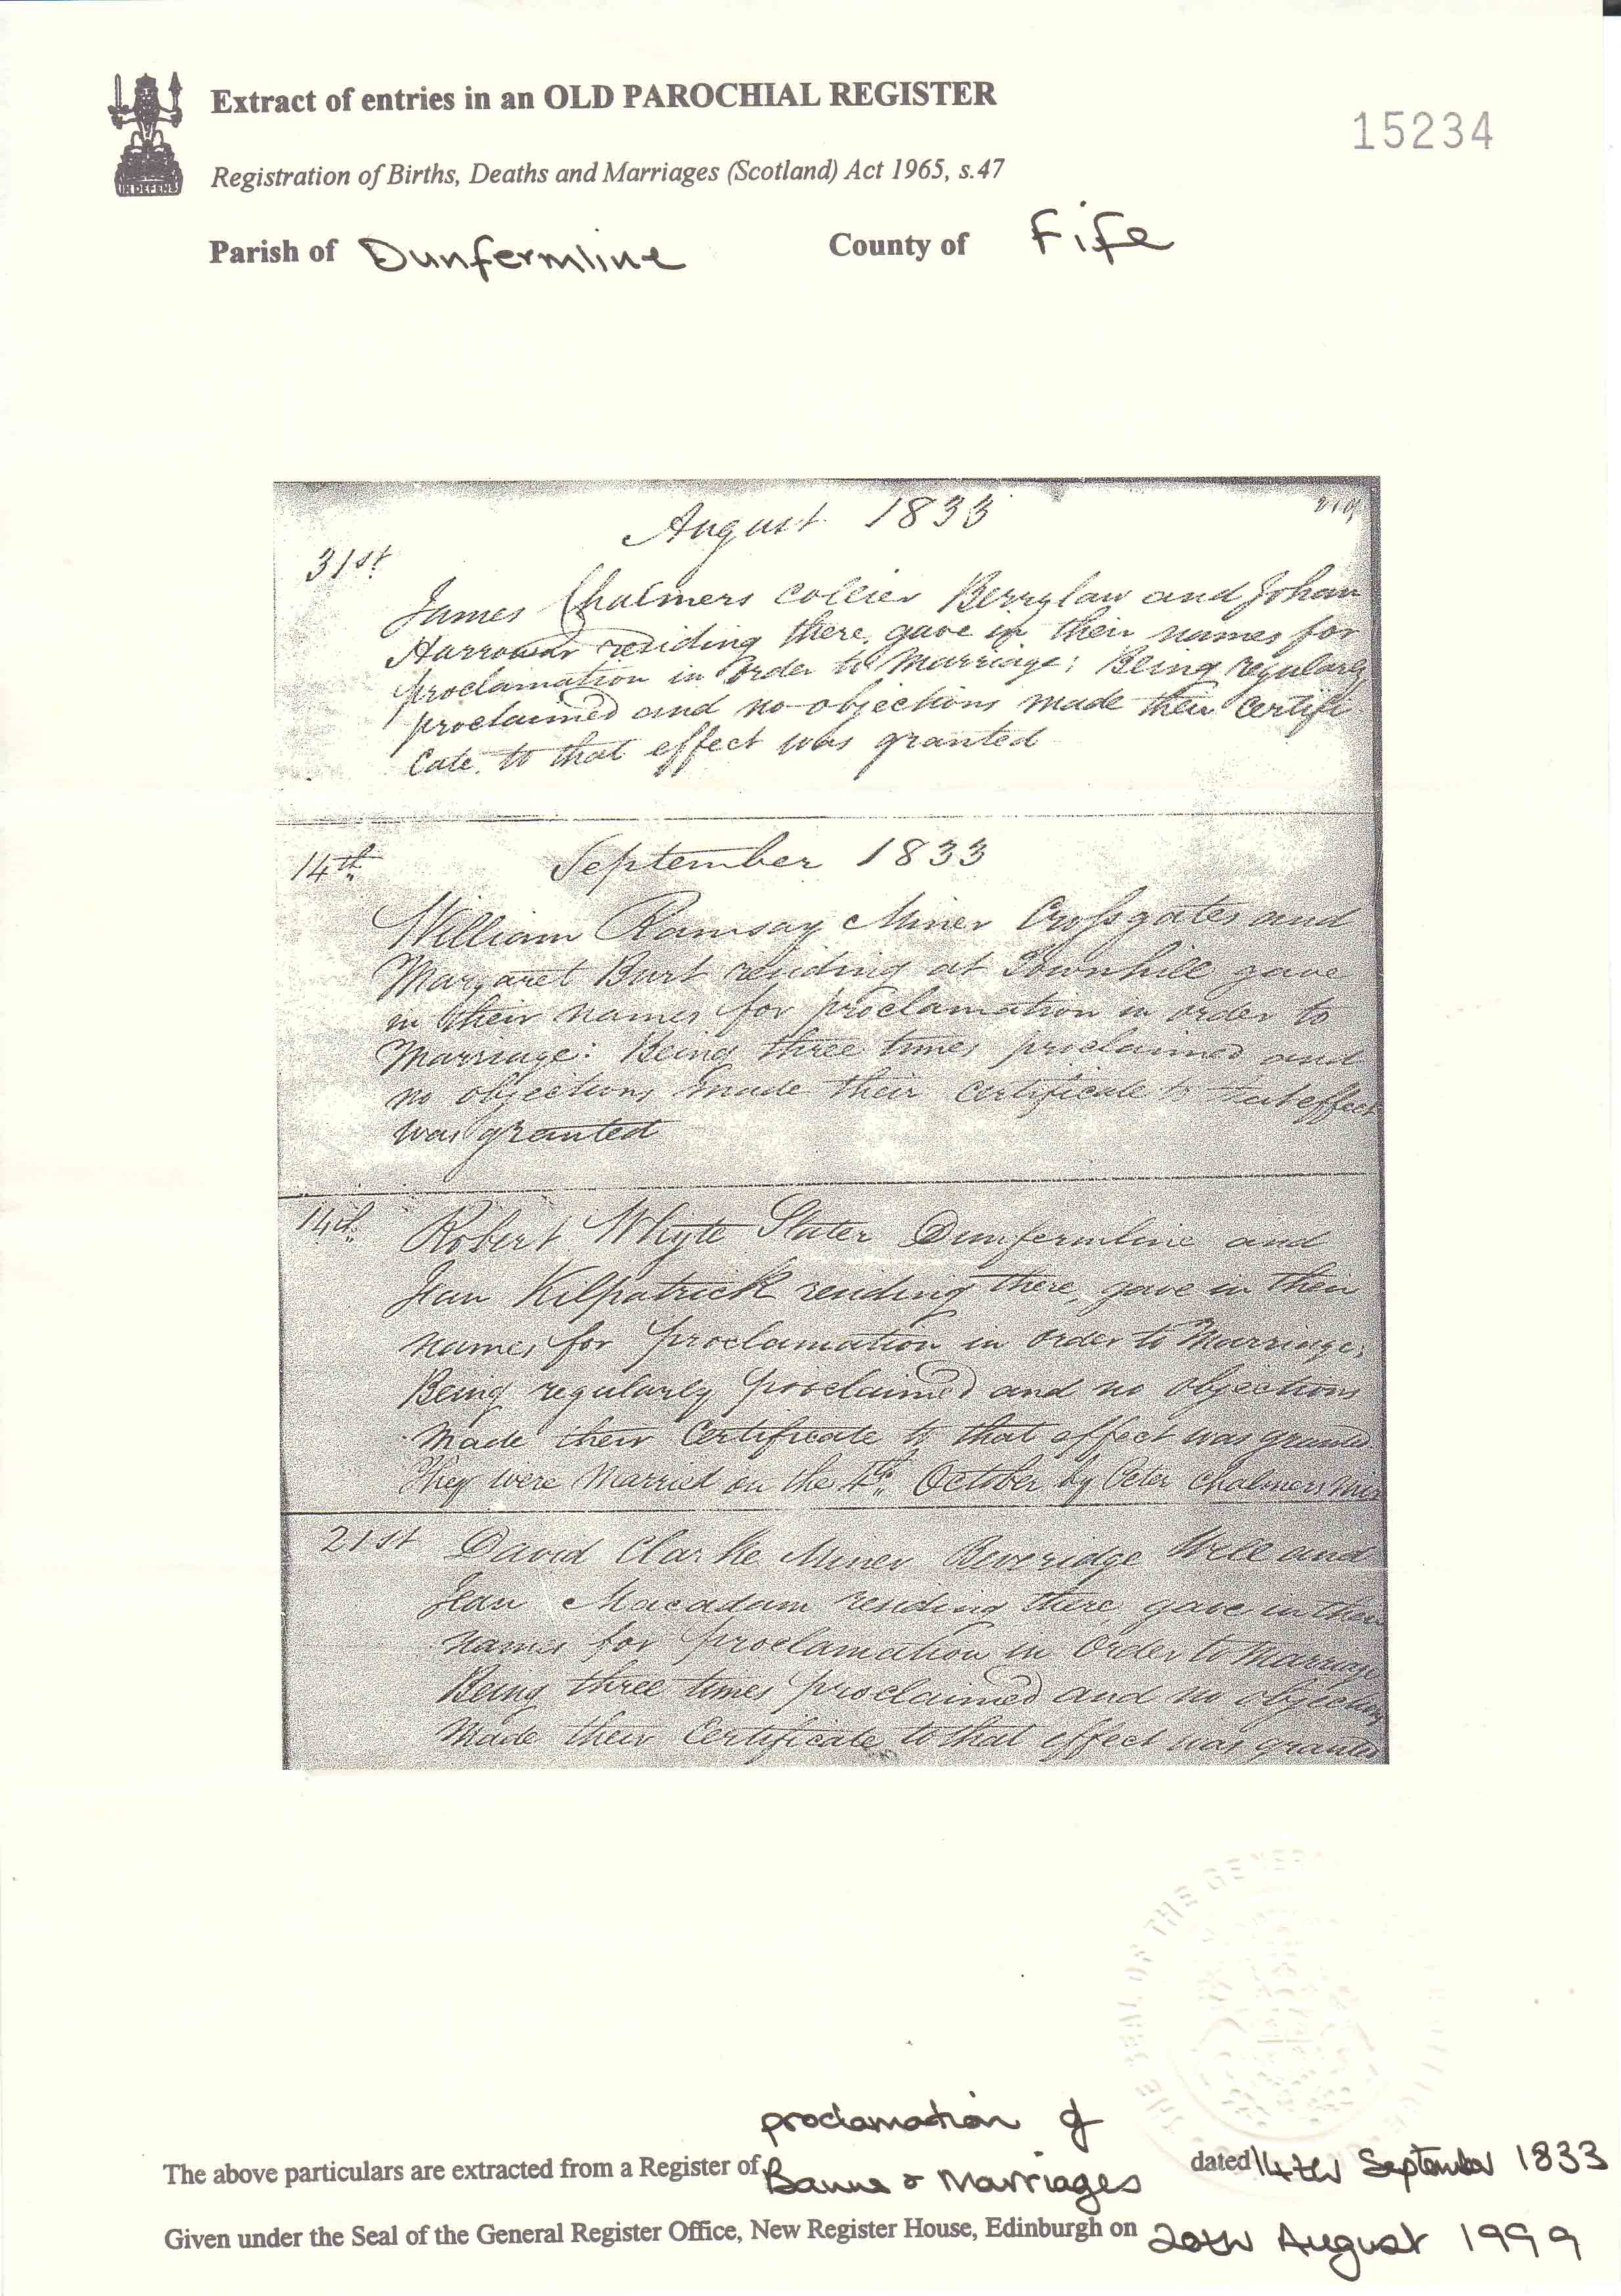 Extract of entries in an OLD PAROCHIAL REGISTER
15234
Registration of Births, Deaths and Marriages (Scotland) Act 1965, s.47
IN DEFENS
Parish of Dunfermline County of Fife
August 1833
31st
James Chalmers Collier Berrylaw and Johan
Harrower residing there, gave in their names for
proclamation in order to Marriage; Being regularly
proclaimed and no objections made their Certifi
cate to that effect was granted
14th September 1833
William Ramsay Miner Crossgates and
Margaret Burt residing at Townhill gave
in their names for proclamation in order to
Marriage: Being three times proclaimed and
no objections made their certificate to that effect
was granted
14th Robert Whyte Slater Dunfermline and
Jean Kilpatrick residing there, gave in their
names for proclamation in order to Marriage,
Being regularly proclaimed and no objections
Made their Certificate to that effect was granted
They were Married on the 4th October by Peter Chalmers Min
21st David Clarke Miner Beveridge Well and
Jean Macadam residing there gave in their
names for proclamation in order to Marriage
Being three times proclaimed and no objections
Made their Certificate to that effect was granted
THE SEAL OF THE GENERAL
proclamation of
The above particulars are extracted from a Register of Banns & Marriages dated 14th September 1833
Given under the Seal of the General Register Office, New Register House, Edinburgh on 20th August 1999